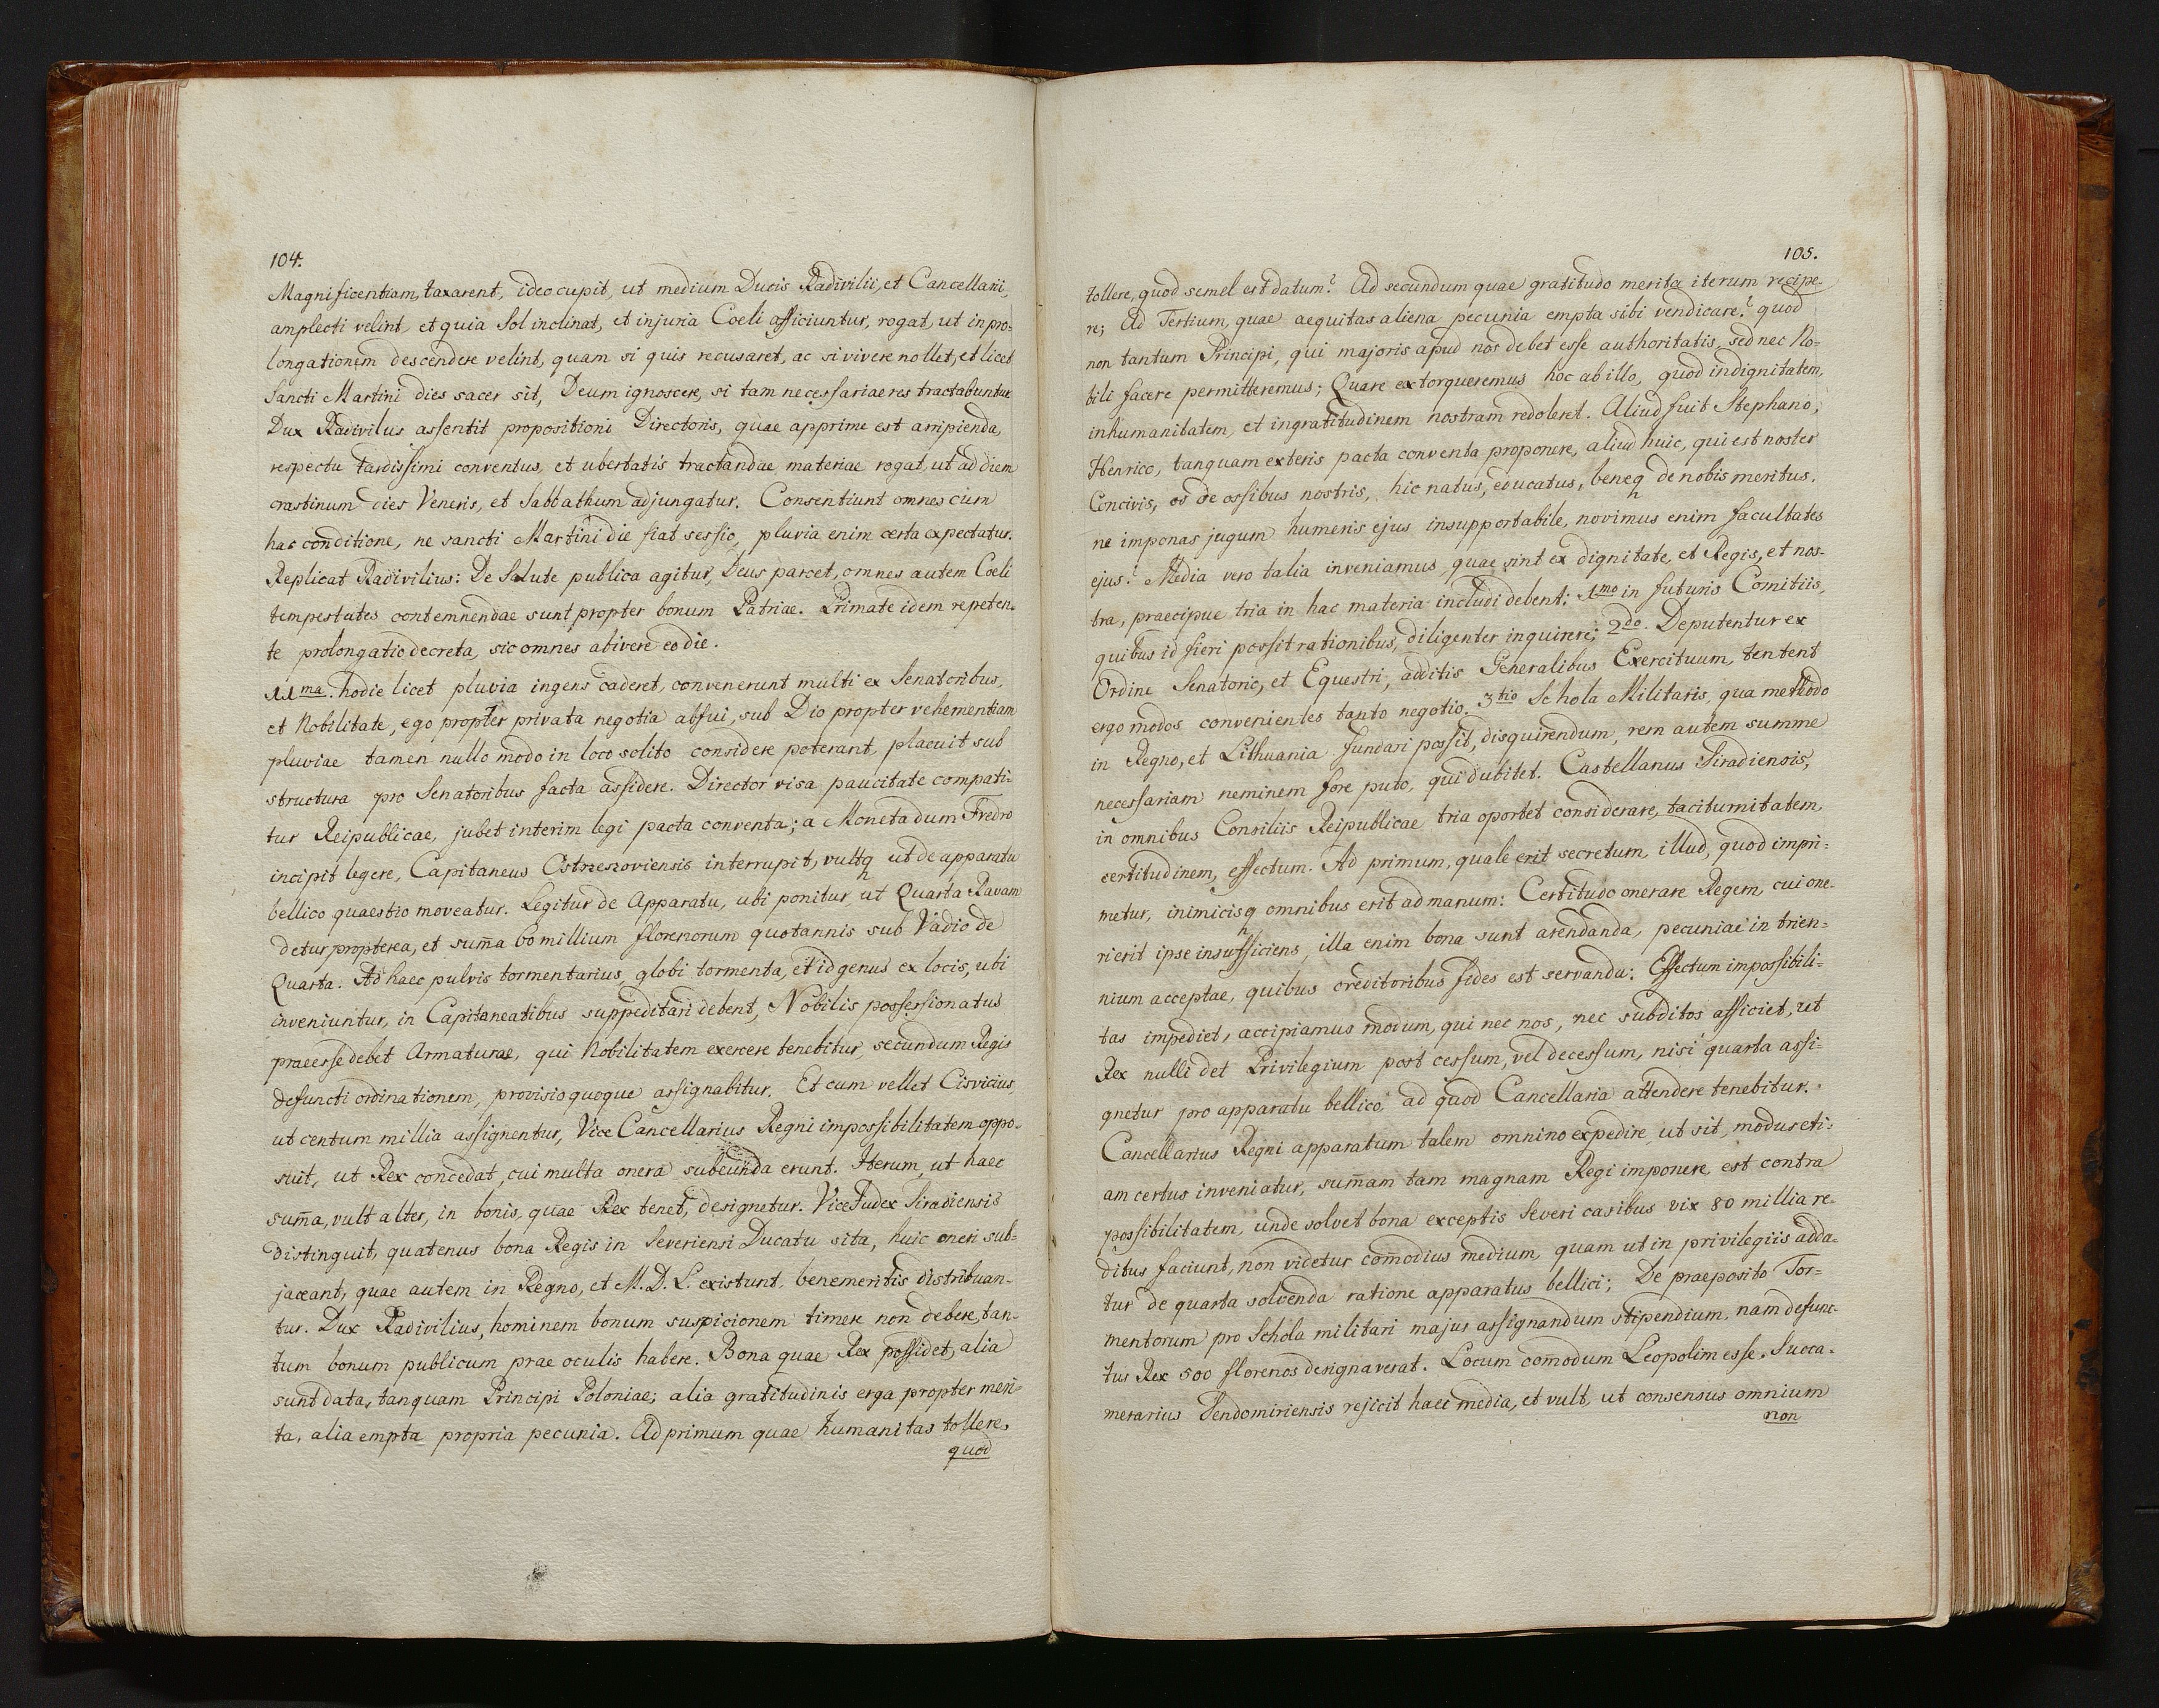 104.
Magnificentiam, taxarent, ideo cupit, ut medium Ducis Radivilii, et Cancellarii,
amplecti velint, et quia Sol inclinat, et injuria Coeli afficiuntur, rogat, ut in pro=
longationem descendere velint, quam si quis recusaret, ac si vivere nollet, et licet
Sancti Martini dies sacer sit, Deum ignoscere, si tam necessariae res tractabuntur.
Dux Radivilus assentit propositioni Directoris, quae apprime est arripienda,
respectu tardissimi conventus, et ubertatis tractandae materiae rogat, ut ad diem
crastinum dies Veneris, et Sabbathum adjungatur. Consentiunt omnes cum
hac conditione, ne sancti Martini die fiat sessio, pluvia enim certa expectatur.
Replicat Radivilius: De Salute publica agitur, Deus parcet, omnes autem Coeli
tempestates contemnendae sunt propter bonum Patriae. Primate idem repeten=
te prolongatio decreta, sic omnes abivere eo die.
11ma. hodie licet pluvia ingens caderet, convenerunt multi ex Senatoribus,
et Nobilitate, ego propter privata negotia abfui, sub Dio propter vehementiam
pluviae tamen nullo modo in loco solito considere poterant, placuit sub
structura pro Senatoribus facta assidere. Director visa paucitate compati=
tur Reipublicae, jubet interim legi pacta conventa; a Moneta dum Fredro
incipit legere, Capitaneus Ostrzeszoviensis interrupit, vultq ut de apparatu
bellico quaestio moveatur. Legitur de Apparatu, ubi ponitur, ut Quarta Ravam
detur propterea, et sum̄a 60 millium florenorum quotannis sub Vadio de
Quarta. Ad haec pulvis tormentarius, globi tormenta, et id genus ex locis, ubi
inveniuntur, in Capitaneatibus suppeditari debent, Nobilis possessionatus
praeesse debet Armaturae, qui Nobilitatem exercere tenebitur, secundum Regis
defuncti ordinationem, provisio quoque assignabitur. Et cum vellet Cisvicius,
ut centum millia assignentur, Vice Cancellarius Regni impossibilitatem oppo=
suit, ut Rex concedat, cui multa onera subeunda erunt. Iterum, ut haec
sum̄a, vult alter, in bonis, quae Rex tenet, designetur. ViceJudex Siradiensis
distinguit, quatenus bona Regis in Severiensi Ducatu sita, huic oneri sub=
jaceant, quae autem in Regno, et M. D. L. existunt, benemeritis distribuan=
tur. Dux Radivilius, hominem bonum suspicionem timere non debere, tan=
tum bonum publicum prae oculis habere. Bona quae Rex possidet, alia
sunt data, tanquam Principi Poloniae; alia gratitudinis erga propter meri=
ta, alia empta propria pecunia. Ad primum quae humanitas tollere,
quod
105.
tollere, quod semel est datum? Ad secundum quae gratitudo merita iterum recipe=
re; Ad Tertium, quae aequitas aliena pecunia empta sibi vendicare? quod
non tantum Principi, qui majoris apud nos debet esse authoritatis, sed nec No=
bili facere permitteremus; Quare extorqueremus hoc ab illo, quod indignitatem,
inhumanitatem, et ingratitudinem nostram redoleret. Aliud fuit Stephano,
Henrico, tanquam exteris pacta conventa proponere, aliud huic, qui est noster
Concivis, os de ossibus nostris, hic natus, educatus, beneq de nobis meritus.
ne imponas jugum humeris ejus insupportabile, novimus enim facultates
ejus. Media vero talia inveniamus, quae sint ex dignitate, et Regis, et nos=
tra, praecipue tria in hac materia includi debent: 1mo in futuris Comitiis,
quibus id fieri possit rationibus, diligenter inquirere; 2do. Deputentur ex
Ordine Senatorio, et Equestri, additis Generalibus Exercituum, tentent
ergo modos convenientes tanto negotio. 3tio Schola Militaris, qua methodo
in Regno, et Lithuania fundari possit, disquirendum, rem autem summe
necessariam neminem fore puto, qui dubitet. Castellanus Siradiensis,
in omnibus Consiliis Reipublicae tria oportet considerare, taciturnitatem,
certitudinem, effectum. Ad primum, quale erit secretum, illud, quod impri=
metur, inimicisq omnibus erit ad manum: Certitudo onerare Regem, cui one=
ri erit ipse insufficiens, illa enim bona sunt arendanda, pecuniae in trien=
nium acceptae, quibus creditoribus fides est servanda: Effectum impossibili=
tas impediet, accipiamus modum, qui nec nos, nec subditos afficiet, ut
Rex nulli det Privilegium post cessum, vel decessum, nisi quarta assi=
gnetur pro apparatu bellico, ad quod Cancellaria attendere tenebitur.
Cancellarius Regni apparatum talem omnino expedire, ut sit, modus eti=
am certus inveniatur, sum̄am tam magnam Regi imponere est contra
possibilitatem, unde solvet bona exceptis Severi casibus vix 80 millia re=
ditus faciunt, non videtur com̄odius medium, quam ut in privilegiis adda=
tur de quarta solvenda ratione apparatus bellici; De praeposito Tor=
mentorum pro Schola militari majus assignandum stipendium, nam defunc=
tus Rex 500 florenos designaverat. Locum com̄odum Leopolim esse. Succa=
merarius Sendomiriensis rejicit haec media, et vult, ut consensus omnium
non